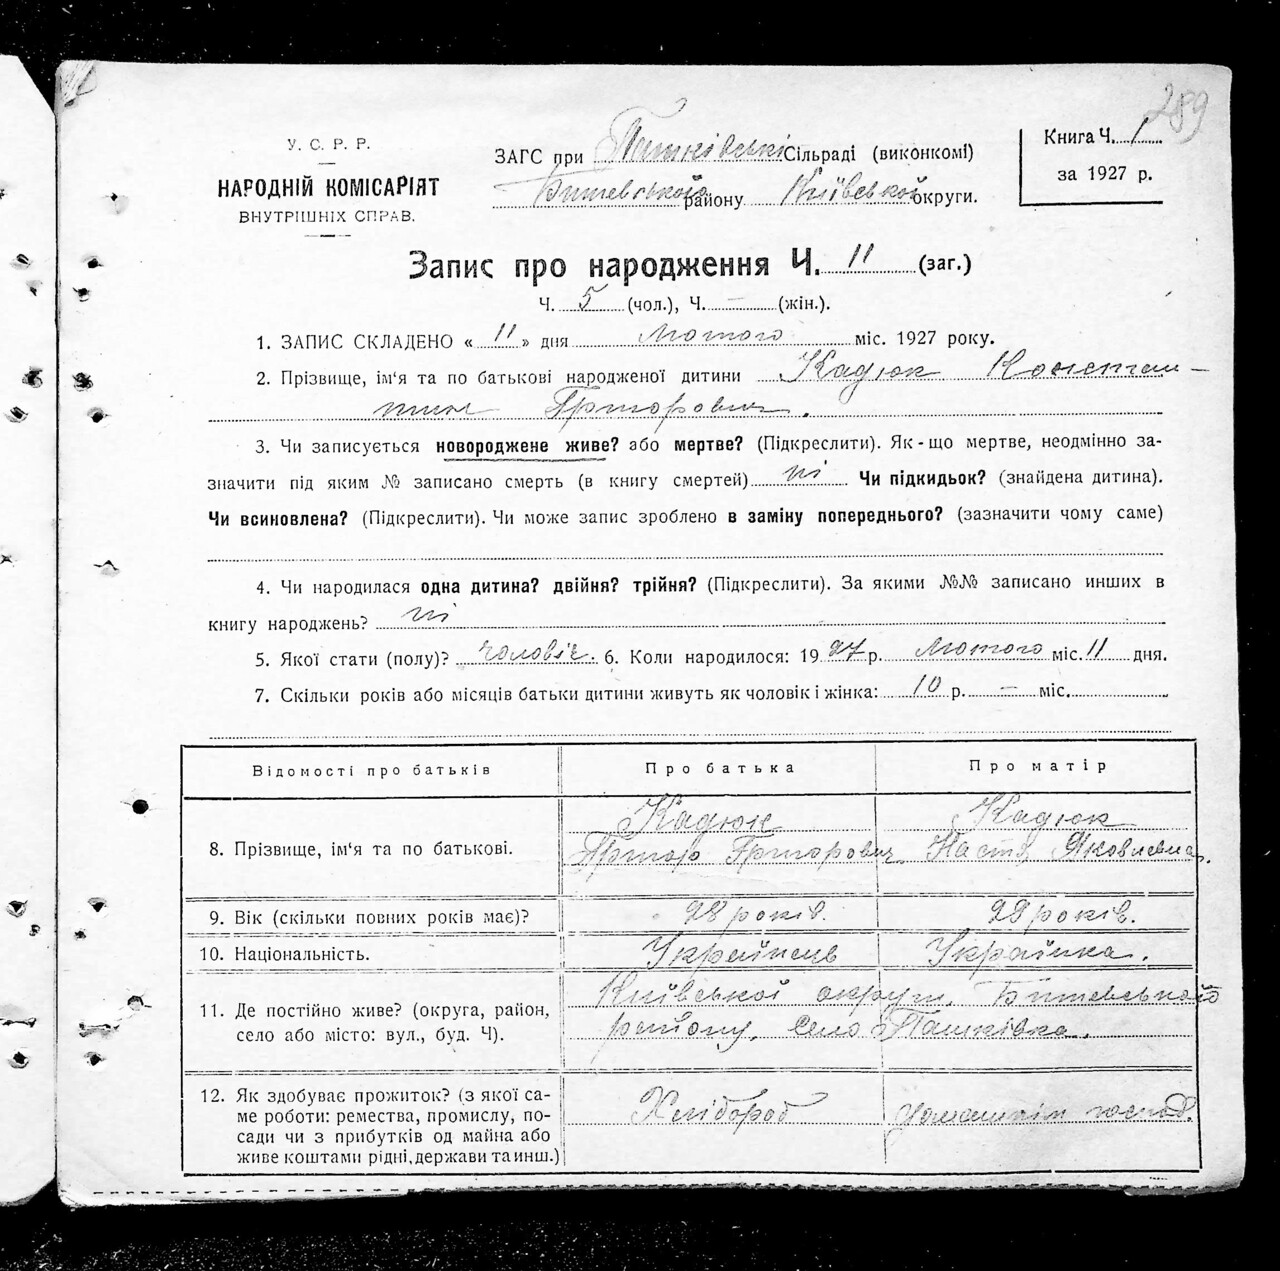 289
У. С. Р. Р.
НАРОДНІЙ КОМІСАРІЯТ
ВНУТРІШНІХ СПРАВ.
ЗАГС при Пашківські Сільраді (виконкомі)
Бишевською району Київської округи.
Книга Ч. 1
за 1927 р.
Запис про народження Ч. 11 (заг.)
Ч. 5 (чол.), Ч. — (жін.).
1. ЗАПИС СКЛАДЕНО « 11 » дня Лютого міс. 1927 року.
2. Прізвище, ім‘я та по батькові народженої дитини Кадюк Констан-
тин Григорович.
3. Чи записується новороджене живе? або мертве? (Підкреслити). Як-що мертве, неодмінно за-
значити під яким № записано смерть (в книгу смертей) ні Чи підкидьок? (знайдена дитина).
Чи всиновлена? (Підкреслити). Чи може запис зроблено в заміну попереднього? (зазначити чому саме)
4. Чи народилася одна дитина? двійня? трійня? (Підкреслити). За якими №№ записано инших в
книгу народжень? ні
5. Якої стати (полу)? чоловіч. 6. Коли народилося: 1927 р. Лютого міс. 11 дня.
7. Скільки років або місяців батьки дитини живуть як чоловік і жінка: 10 р. — міс.
Відомості про батьків Про батька Про матір
8. Прізвище, ім‘я та по батькові. Кадюк Кадюк
Григор Григорович Настя Яковлевна.
9. Вік (скільки повних років має)? 28 років. 29 років.
10. Національність. Українець Українка.
11. Де постійно живе? (округа, район,
село або місто: вул., буд. Ч).
Київської округи, Бишевського
району, село Пашківка.
12. Як здобуває прожиток? (з якої са-
ме роботи: ремества, промислу, по-
сади чи з прибутків од майна або
живе коштами рідні, держави та инш.)
Хлібороб Домашнім господ.